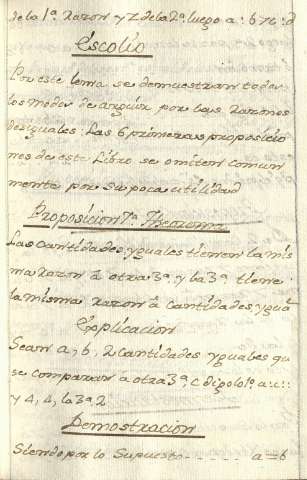 de la 1ª razon y Z de la 2ª luego a : b > c : d
Escolio
Por este lema se demuestran todos
los modos de arguir por las razones
desiguales. Las 6 primeras proposicio
nes de este Libro se omiten comun
mente por su poca utilidad
Proposicion 7ª Theorema
Las cantidades yguales tienen la mis
ma razon â otra 3ª y la 3ª tiene
la misma razon â cantidades ygua
Explicacion
Sean a, b, 2 cantidades yguales qu
se comparan â otra 3ª c digo lo 1º a : c : :
y 4, 4, la 3ª 2
Demostracion
Siendo por lo Supuesto - - - - - a = b